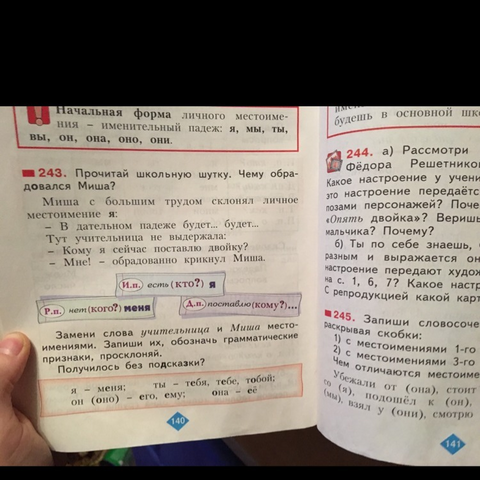 Начальная форма личного местоиме-
ния – именительный падеж: я, мы, ты,
вы, он, она, оно, они.
243. Прочитай школьную шутку. Чему обра-
довался Миша?
Миша с большим трудом склонял личное
местоимение я:
– В дательном падеже будет... будет...
Тут учительница не выдержала:
– Кому я сейчас поставлю двойку?
– Мне! – обрадованно крикнул Миша.
И.п. есть (кто?) я
Р.п. нет (кого?) меня
Д.п. поставлю (кому?)...
Замени слова учительница и Миша место-
имениями. Запиши их, обозначь грамматические
признаки, просклоняй.
Получилось без подсказки?
я – меня; ты – тебя, тебе, тобой;
он (оно) – его, ему; она – её
140
будешь в основной шк
244. а) Рассмотри
Фёдора Решетников
Какое настроение у учени
это настроение передаётс
позами персонажей? Поче
«Опять двойка»? Веришь
мальчика? Почему?
б) Ты по себе знаешь,
разным и выражается он
настроение передают худож
на с. 1, 6, 7? Какое настр
С репродукцией какой карт
245. Запиши словосоче
раскрывая скобки:
1) с местоимениями 1-го
2) с местоимениями 3-го
Чем отличаются местоиме
Убежали от (она), стоит
то (я), подошёл к (он),
(мы), взял у (они), смотрю
141